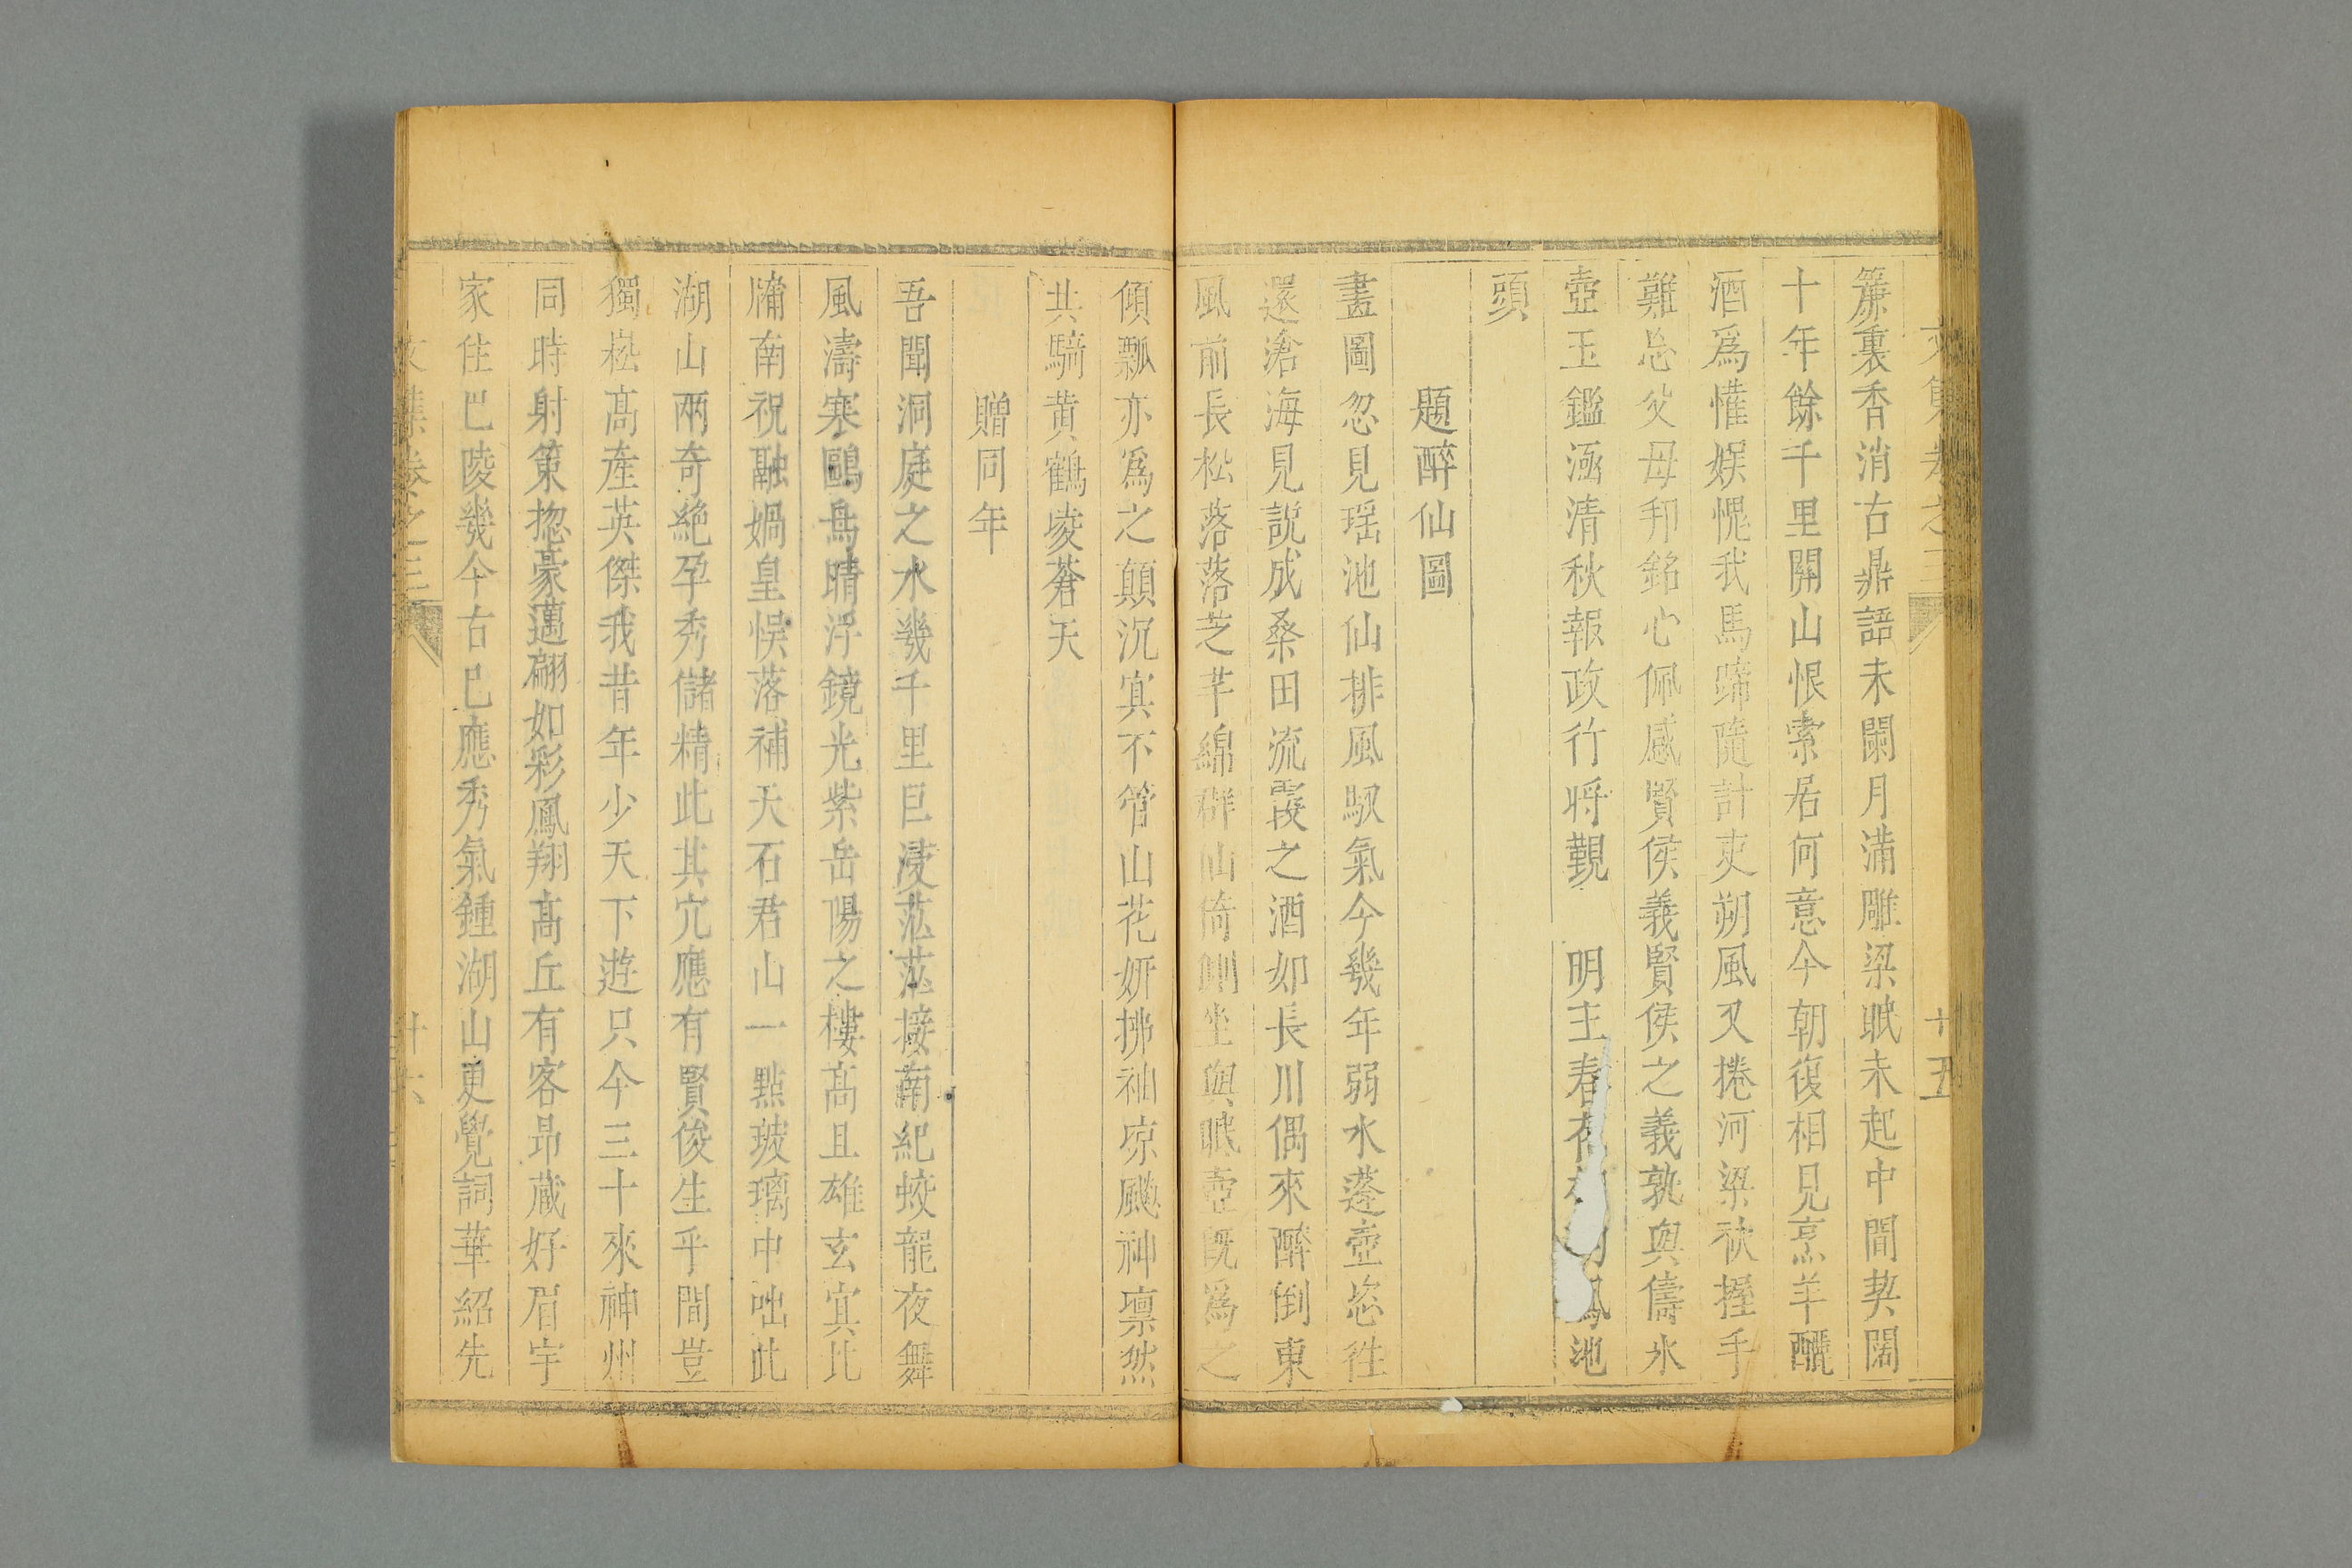 簾裏香消古鼎語未闌月滿雕梁眠未起中間契闊
十年餘千里關山恨索居何意今朝復相見烹羊釃
酒爲懽娱愧我馬蹄隨計吏朔風又捲河梁袂握手
難忘父母邦銘心佩感賢侯義賢侯之義孰與儔氷
壺玉鑑涵清秋報政行将覲 明主春 鳳池
頭
題醉仙圖
畫圖忽見瑶池仙排風馭氣今幾年弱水蓬壺恣徃
還滄海見說成桑田流霞之酒如長川偶來醉倒東
風前長松落落芝芊綿群仙倚側坐與眠壺既爲之
傾瓢亦爲之顛沉㝠不管山花妍拂袖凉飈神凛然
共騎黄鶴凌蒼天
贈同年
吾聞洞庭之水幾千里巨浸茫茫接南紀蛟龍夜舞
風濤寒鷗鳥晴浮鏡光紫岳陽之樓髙且雄玄㝠北
牖南祝融媧皇悮落補天石君山一點玻璃中咄此
湖山兩竒絶孕秀儲精此其宂應有賢俊生乎間豈
獨崧髙産英傑我昔年少天下遊只今三十來神州
同時射策揔豪邁翩如彩鳳翔髙丘有客昂藏好眉宇
家住巴陵幾今古已應秀氣鍾湖山更覺詞華紹先
文集卷之三
十五
文集卷之三
十六